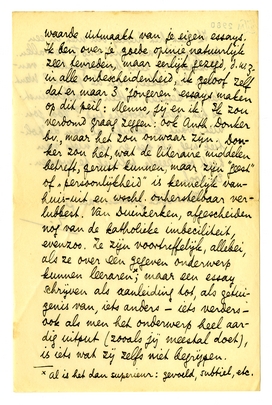 waarde uitmaakt van je eigen essays.
Ik ben over je goede opinie natuurlijk
zeer tevreden, maar eerlijk gezegd, d.w.z.
in alle onbescheidenheid, ik geloof zelf
dat er maar 3 "jongeren" essays maken
op dit peil: Menno, jij en ik. Ik zou
verdomd graag zeggen: ook Anth. Donker
bv., maar het zou onwaar zijn. Donker
zou het, wat de literaire middelen
betreft, gerust kunnen, maar zijn "geest"
of "persoonlijkheid" is kennelijk van-
huis-uit en wschl. onherstelbaar ver-
lubbert. Van Duinkerken, afgescheiden
nog van de katholieke imbeciliteit,
evenzoo. Ze zijn voortreffelijk, allebei,
als ze over een gegeven onderwerp
kunnen leeraren*; maar een essay
schrijven als aanleiding tot, als getui-
genis van, iets anders – iets verders –
ook als men het onderwerp heel aar-
dig uitput (zooals jij meestal doet),
is iets wat zij zelfs niet begrijpen.
* al is het dan superieur: gevoeld, subtiel, etc.